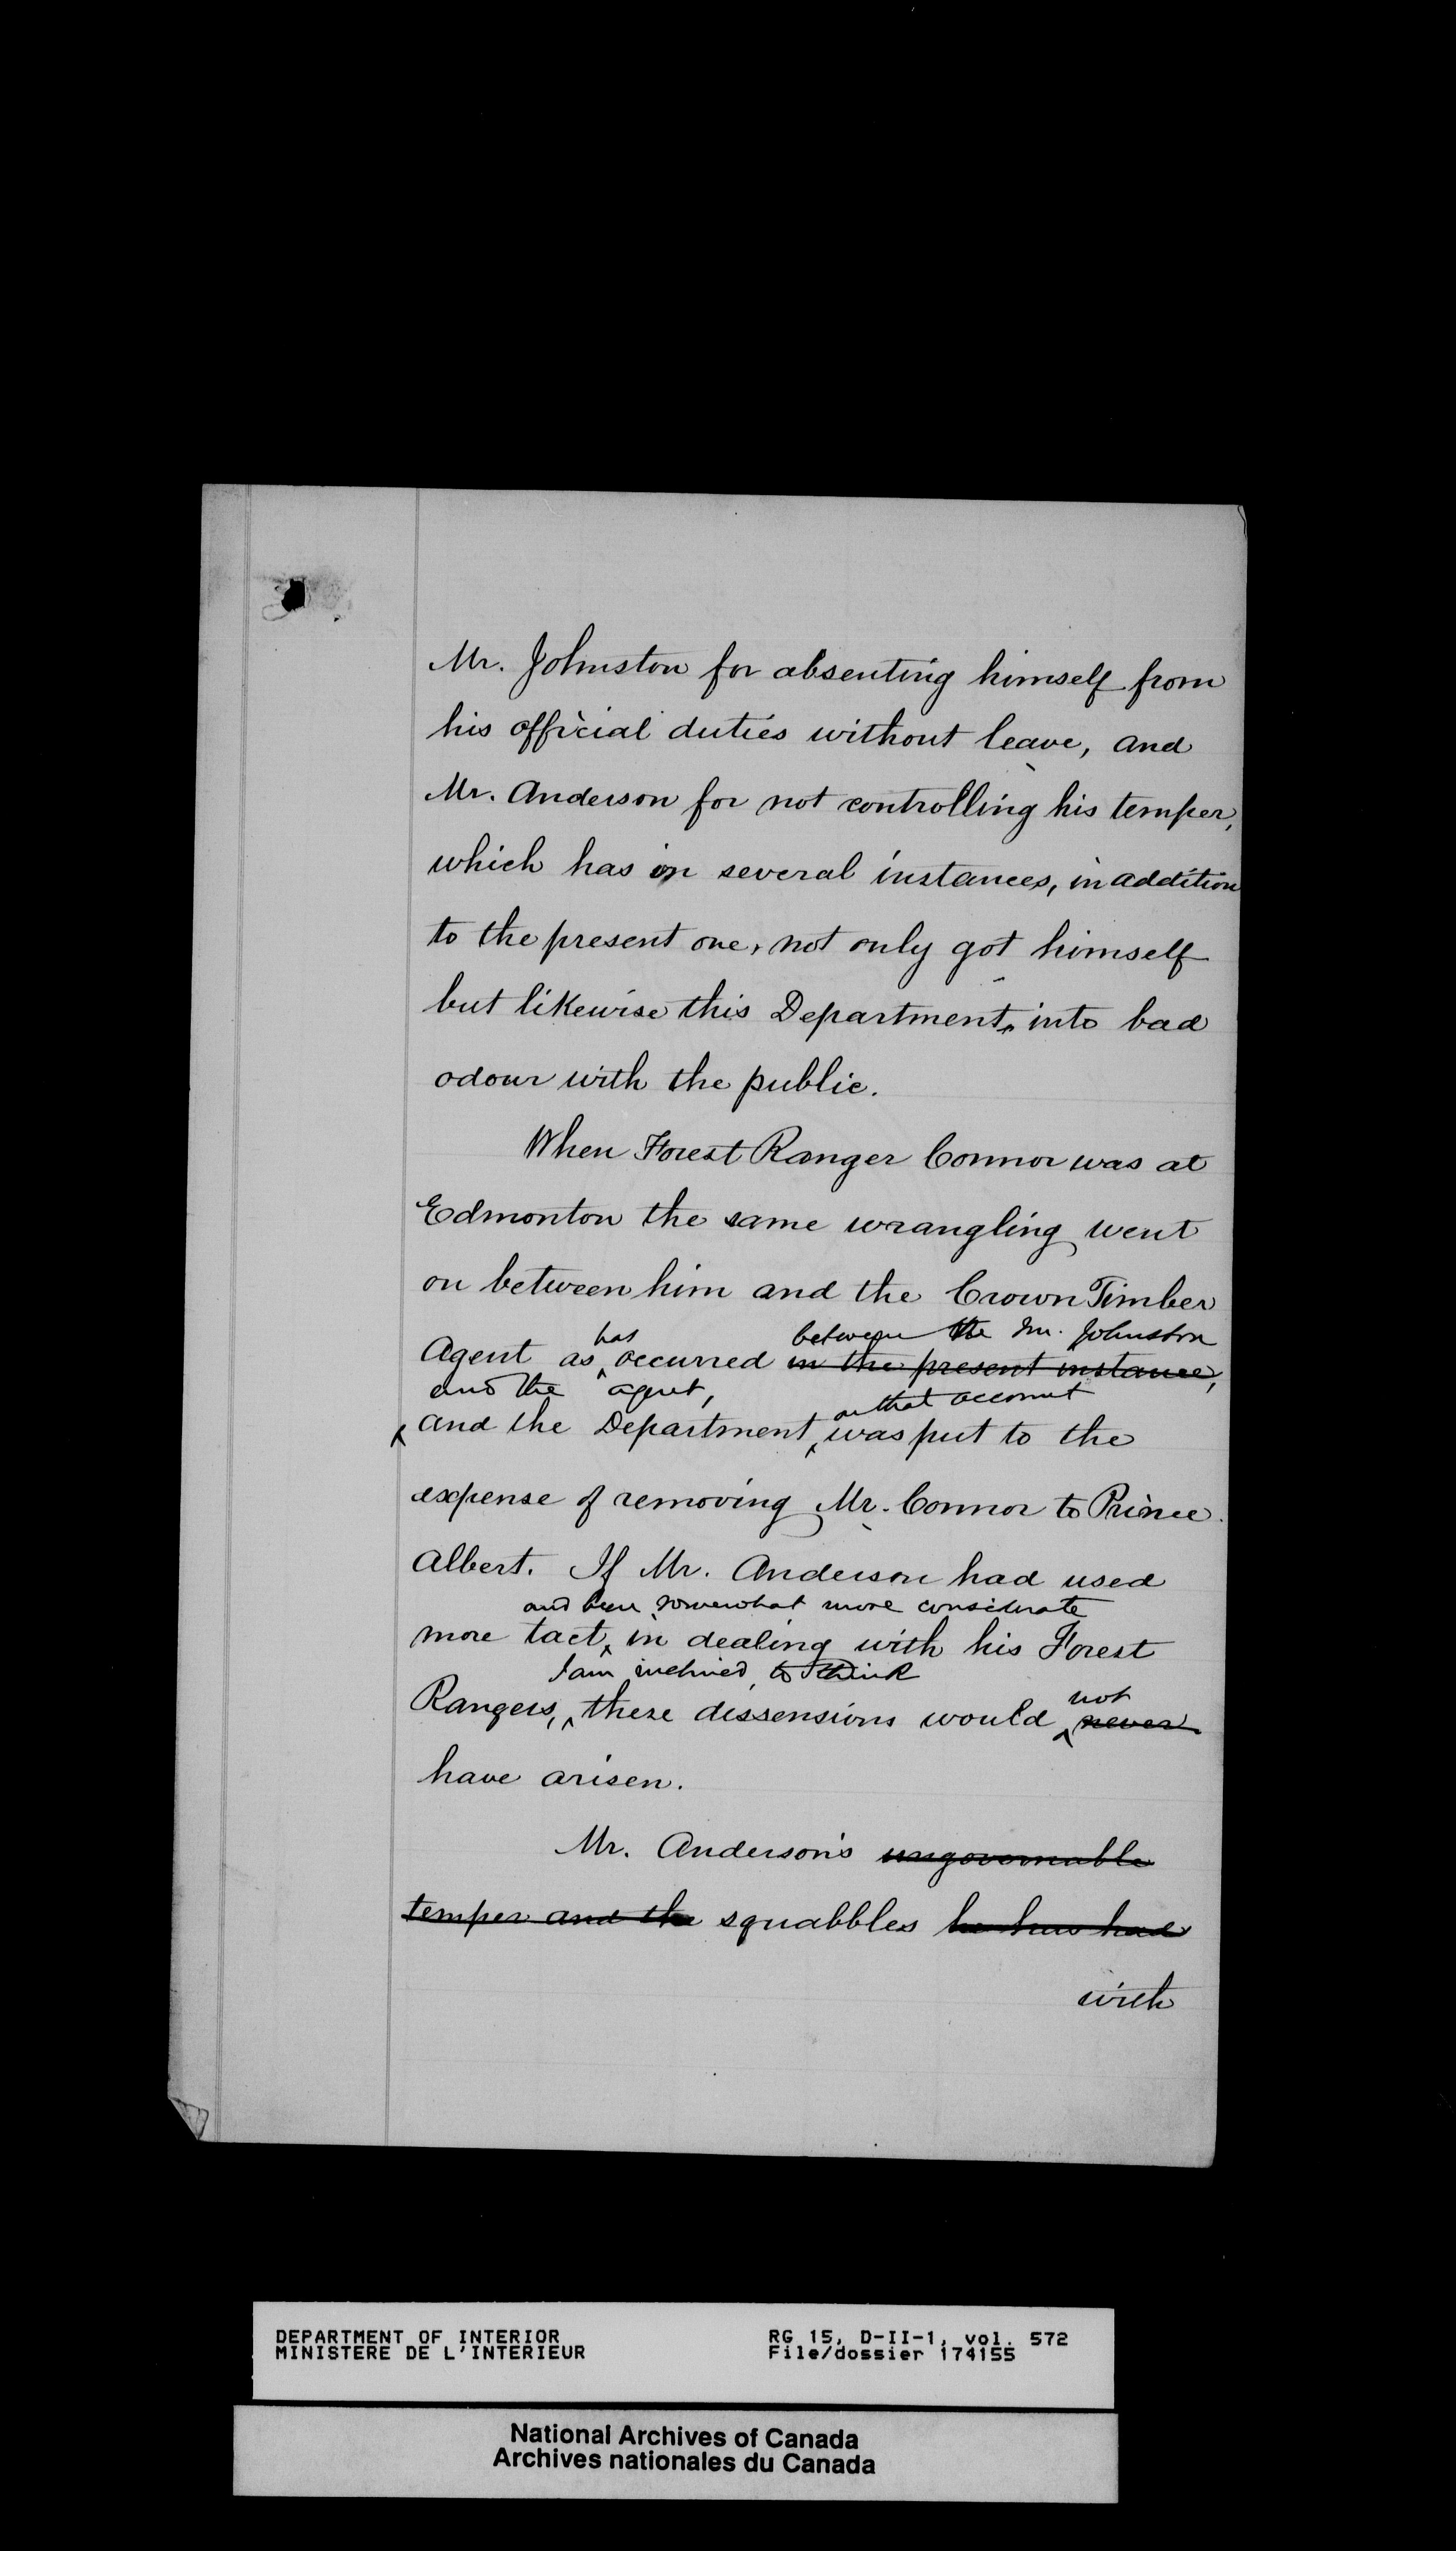 Mr. Johnston for absenting himself from
his official duties without leave, and
Mr. Anderson for not controlling his temper,
which has in several instances, in addition
to the present one, not only got himself
but likewise this Department, into bad
odour with the public.
When Forest Ranger Connor was at
Edmonton the same wrangling went
on between him and the Crown Timber
has between the Mr. Johnston
Agent as occurred in the present instance,
and the agent, on that account
and the Department, was put to the
expense of removing Mr. Connor to Prince
Albert. If Mr. Anderson had used
and been somewhat more considerate
more tact, in dealing with his Forest
I am inclined, to think
not
Rangers, these dissensions would never
have arisen.
Mr. Anderson's ungovernable
temper and the squabbles he has had
with
DEPARTMENT OF INTERIOR RG 15, D-II-1, vol. 572
MINISTERE DE L'INTERIEUR File/dossier 174155
National Archives of Canada
Archives nationales du Canada